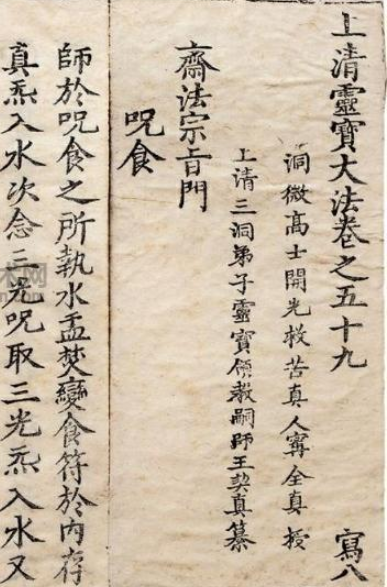 上清靈寶大法卷之五十九
寫八
洞微髙士開光救苦真人寗全真授
上清三洞弟子靈寶領教嗣師王契真纂
齋法宗旨門
呪食
師於呪食之所執水盂焚變食符於内存
真炁入水次念三光呪取三光炁入水又